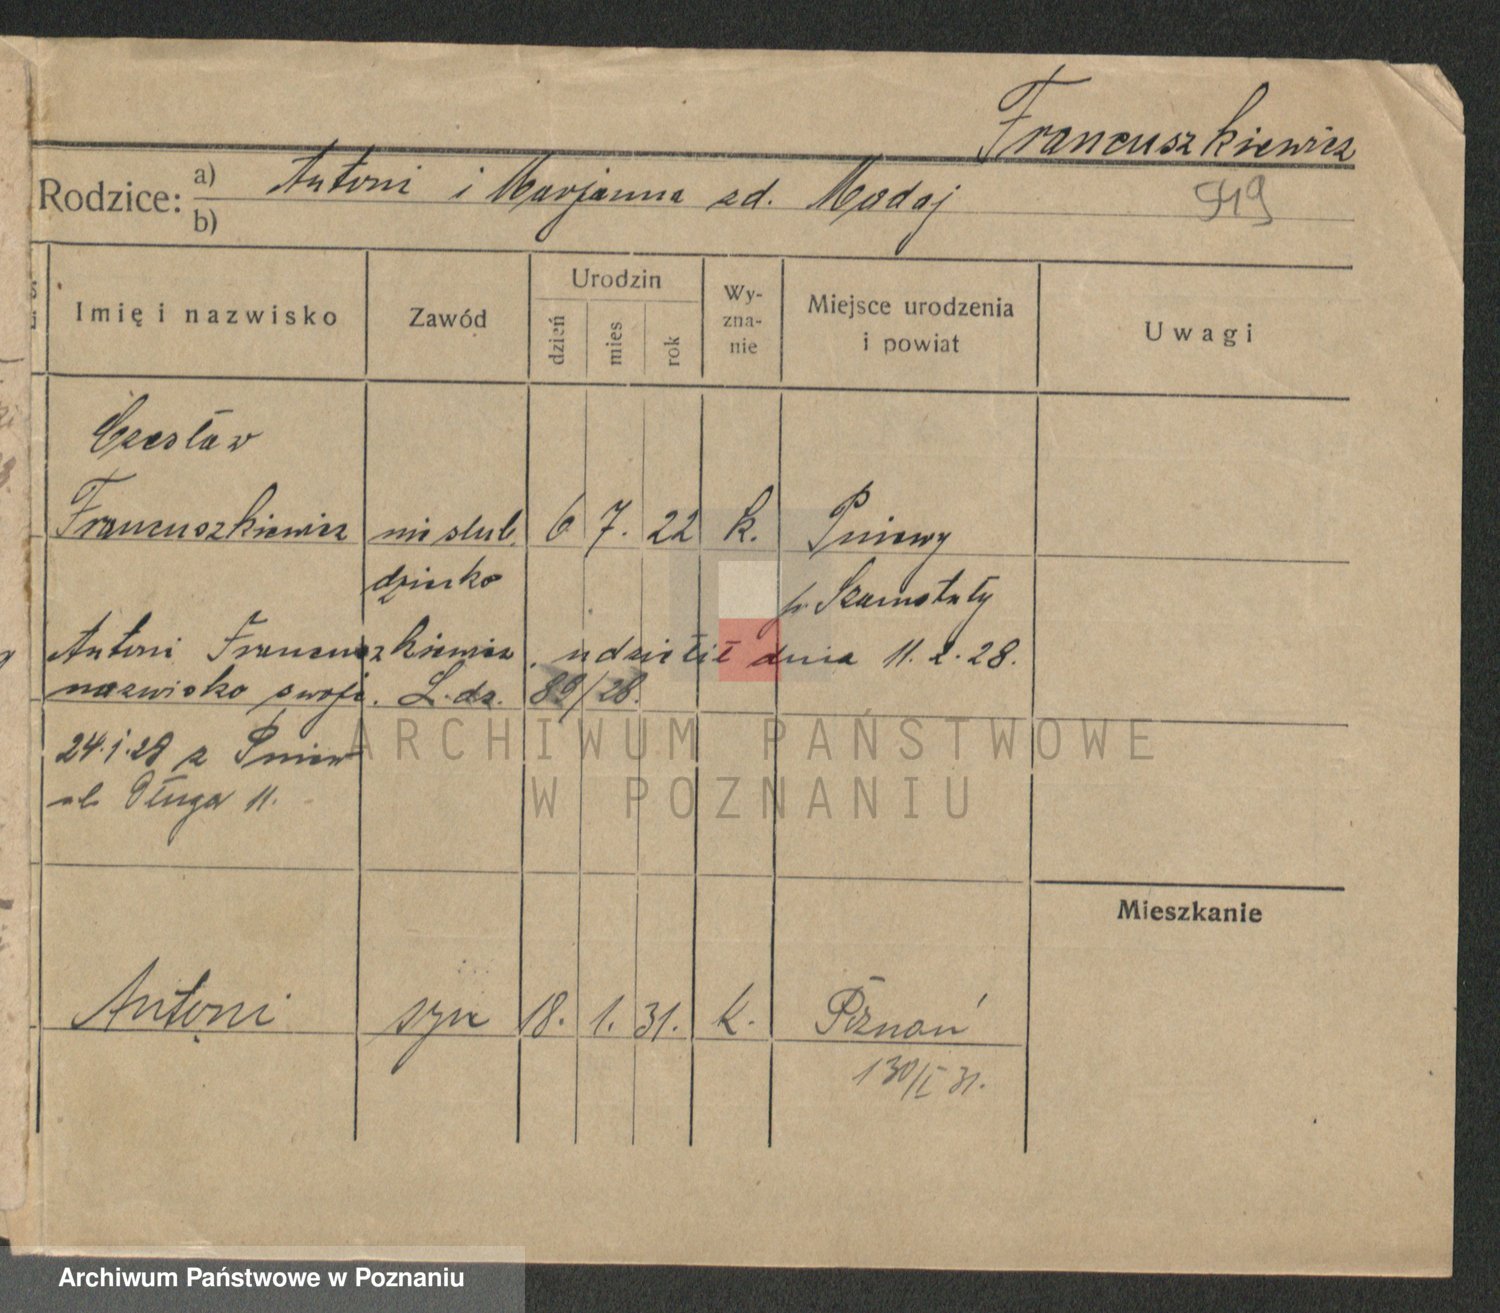 Francuszkiewicz
Rodzice: a) Antoni i Marjanna zd. Madaj
b)
549
Imię i nazwisko
Zawód
Urodzin
dzień
mies
rok
Wy-
zna-
nie
Miejsce urodzenia
i powiat
Uwagi
Czesław
Francuszkiewicz nieslub. 6 7. 22 k. Pniewy
dziecko p. Szamotuły
Antoni Francuszkiewicz, udzielił dnia 11.2.28.
nazwisko swoje. L. dz. 89/28.
24.1.28 z Pniew
ul. Długa 11.
ARCHIWUM PAŃSTWOWE
W POZNANIU
Mieszkanie
Antoni syn 18. 1. 31. k. Poznań
130/I 31.
Archiwum Państwowe w Poznaniu